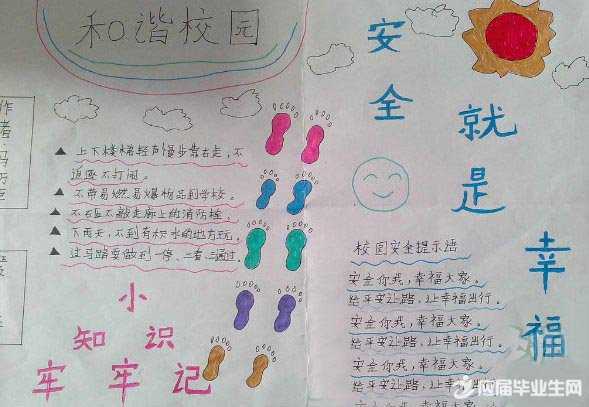 和谐校园
作
者
冯
万
▲ 上下楼梯轻声慢步靠右走,不
追逐不打闹。
▲ 不带易燃易爆物品到学校。
▲ 不乱不敲走廊上的消防栓。
▲ 下雨天,不到有积水的地方玩。
▲ 过马路要做到一停、二看、三通过
小
知识
牢牢记
安全
就是
幸福
校园安全提示语
安全你我,幸福大家,
给平安让路,让幸福出行。
安全你我,幸福大家,
给平安让路,让幸福出行。
安全你我,幸福大家,
给平安让路,让幸福出行。
应届毕业生网